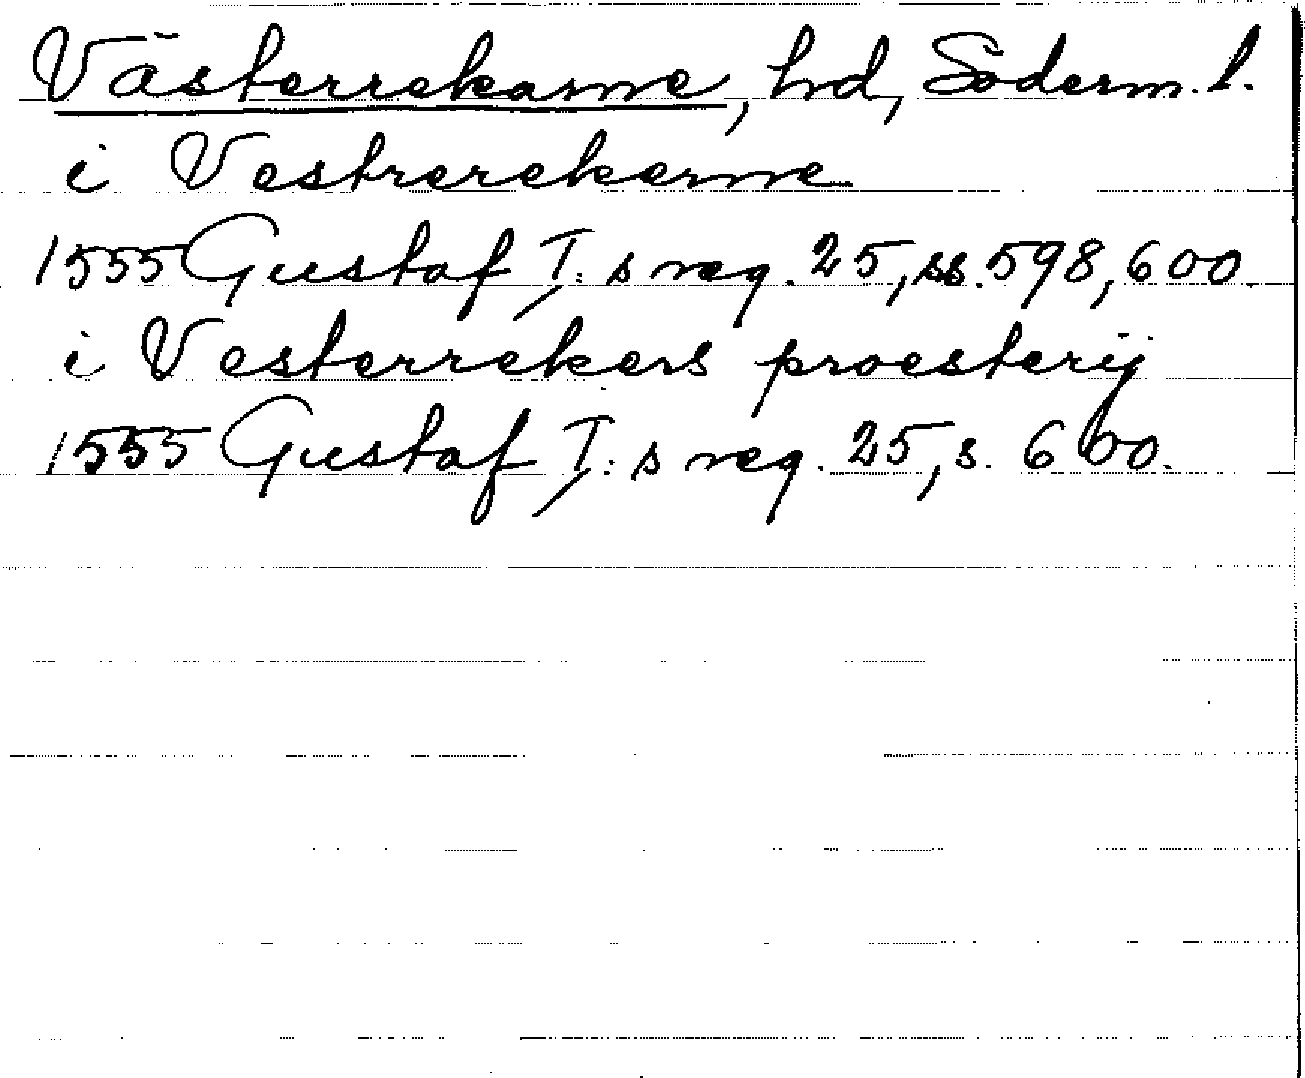 Västerrekarne, hd, Söderm. l.
i Vestrerekerne
1555 Gustaf I:s reg. 25, ss. 598, 600.
i Vesterrekers proesterij
1555 Gustaf I:s reg. 25, s. 600.